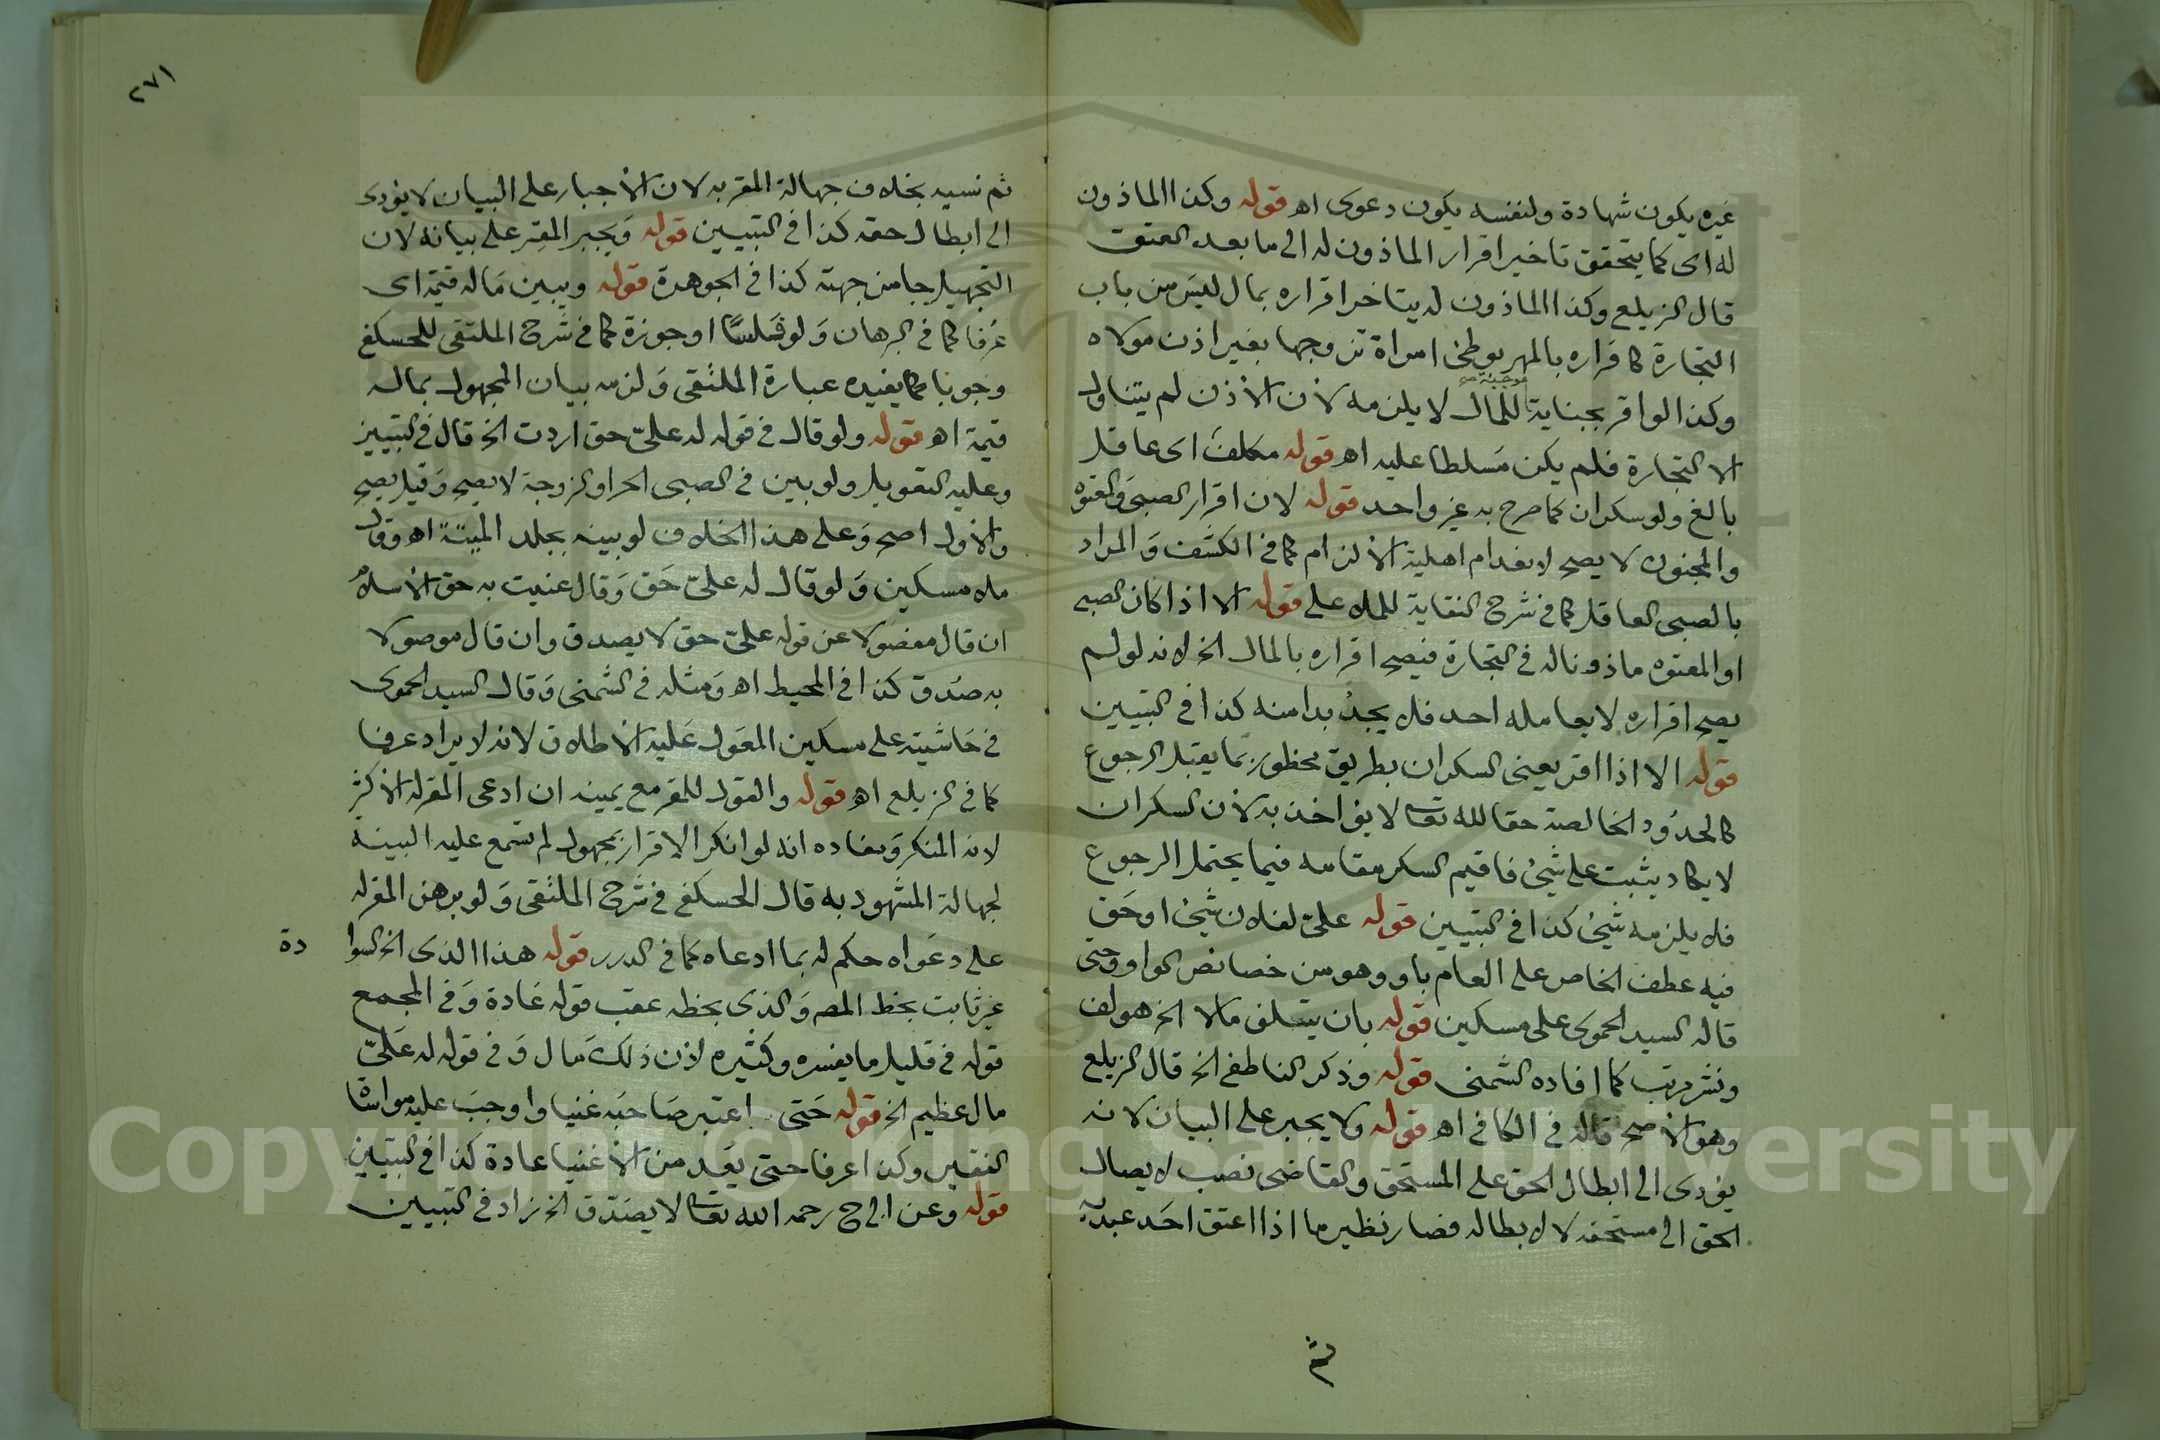 غيره يكون شهادة ولنفسه يكون دعوى اه قوله وكذا الماذون
له اى كما يتحقق تاخير اقرار الماذون له الى ما بعد العتق
قال الزيلع وكذا الماذون له يتاخر اقراره بمال ليس من باب
التجارة كاقراره بالمهر بوطئ امراة تزوجها بغير اذن مولاه
وكذا لو اقر بجناية موجبة للمال لا يلزمه لان الاذن لم يتناول
الا التجارة فلم يكن مسلطا عليه اه قوله مكلف اى عاقل
بالغ ولو سكران كما صرح به غير واحد قوله لان اقرار الصبى والمعتوه
والمجنون لا يصح لانعدام اهلية الالتزام كما فى الكشف والمراد
بالصبى العاقل كما فى شرح النقاية للملا على قوله الا اذا كان الصبى
او المعتوه ماذونا له فى التجارة فيصح اقراره بالمال الخ لانه لو لم
يصح اقراره لا يعامله احد فلا يجد بدا منه كذا فى التبيين
قوله الا اذا اقر يعنى السكران بطريق محظور بما يقبل الرجوع
كالحدود الخالصة حقا لله تعالى لا يؤاخذ به لان السكران
لا يكاد يثبت على شيئ فاقيم السكر مقامه فيما يحتمل الرجوع
فلا يلزمه شيئ كذا فى التبيين قوله علىّ لفلان شيئ او حق
فيه عطف الخاص على العام باو وهو من خصائص الواو وحتى
قاله السيد الحموى على مسكين قوله بان يتلف مالا الخ هو لف
ونشر مرتب كما افاده الشمنى قوله وذكر الناطفى الخ قال الزيلع
وهو الاصح قاله فى الكافى اه قوله ولا يجبر على البيان لانه
يؤدى الى ابطال الحق على المستحق والقاضى نصب لايصال
الحق الى مستحقه لا لابطاله فصار نظير ما اذا اعتق احد عبديه
ثم
٢٧١
ثم نسيه بخلاف جهالة المقر به لان الاجبار على البيان لا يؤدى
الى ابطال حقه كذا فى التبيين قوله ويجبر المقر على بيانه لان
التجهيل جا من جهته كذا فى الجوهرة قوله ويبين ما له قيمة اى
عرفا كما فى البرهان ولو فلسا او جوزة كما فى شرح الملتقى للحسكفى
وجوبا كما يفيده عبارة الملتقى ولزمه بيان المجهول بما له
قيمة اه قوله ولو قال فى قوله له علىّ حق اردت الخ قال فى التبيين
وعليه التعويل ولو بين فى الصبى الحر او الزوجة لا يصح وقيل يصح
والاول اصح وعلى هذا الخلاف لو بينه بجلد الميتة اه وقال
ملا مسكين ولو قال له علىّ حق وقال عنيت به حق الاسلام
ان قال مفصولا عن قوله علىّ حق لا يصدق وان قال موصولا
به صدق كذا فى المحيط اه ومثله فى الشمنى وقال السيد الحموى
فى حاشيته على مسكين المعول عليه الاطلاق لانه لا يراد عرفا
كما فى الزيلع اه قوله والقول للمقر مع يمينه ان ادعى المقر له الاكثر
لانه المنكر ومفاده انه لو انكر الاقرار بمجهول لم تسمع عليه البينة
لجهالة المشهود به قال الحسكفى فى شرح الملتقى ولو برهن المقر له
على دعواه حكم له بما ادعاه كما فى الدرر قوله هذا الذى الخ السوا دة
غير ثابت بخط المصـ والذى بخطه عقب قوله عادة وفى المجمع
قوله فى قليل ما يفسره وكثيره لان ذلك مال وفى قوله له علىّ
مال عظيم الخ قوله حتى اعتبر صاحبه غنيا واوجب عليه مواساة
الفقير وكذا عرفا حتى يعد من الاغنيا عادة كذا فى التبيين
قوله وعن ابى ح رحمه الله تعالى لا يصدق الخ زاد فى التبيين
Copyright © King Saud University